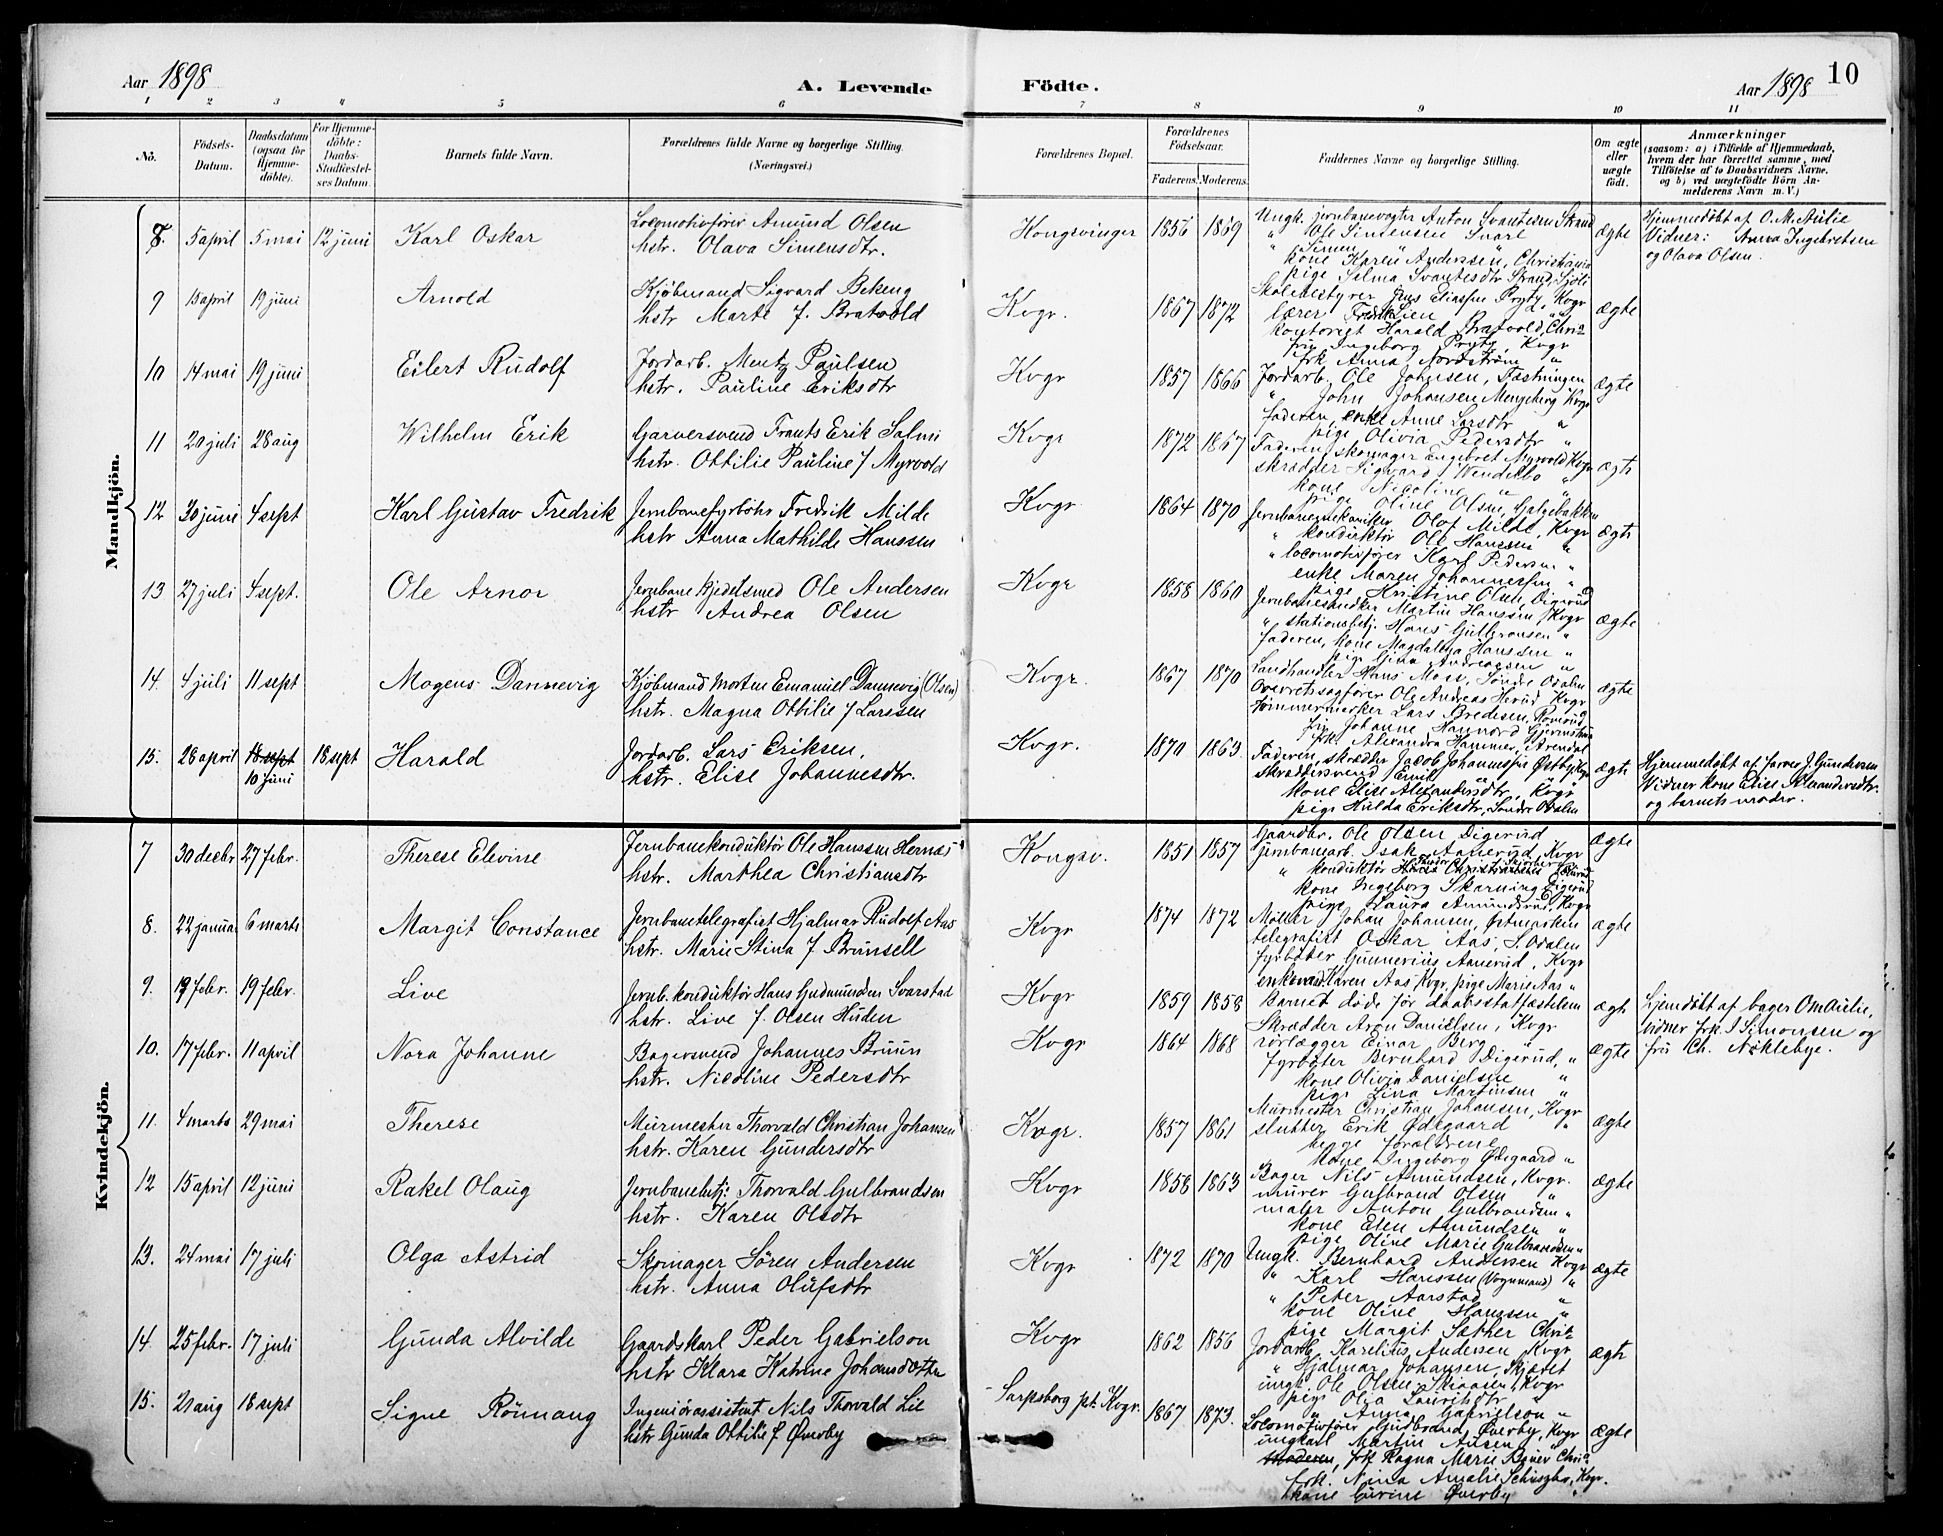 Aar 1898
A. Levende
Födte.
Aar 1898
10
1 2 3 4 5 6 7 8 9 10 11
No.
Födsels-Datum.
Daabsdatum (ogsaa for Hjemme-döbte).
For Hjemme-döbte: Daabs-Stadfæstel-ses Datum.
Barnets fulde Navn.
Forældrenes fulde Navne og borgerlige Stilling.
(Næringsvei.)
Forældrenes Bopæl.
Forældrenes Födselsaar.
Faderens. Moderens.
Faddernes Navne og borgerlige Stilling.
Om ægte eller uægte födt.
Anmærkninger
(saasom: a) i Tilfælde af Hjemmedaab,
hvem der har forrettet samme, med
Tilföielse af to Daabsvidners Navne.
og b) ved uægtefödte Börn An-
melderens Navn m. V.)
Mandkjön.
8. 5 april 5 mai 12 juni Karl Oskar
Locomotivförer Amund Olsen
hstr. Olava Simensdtr.
Kongsvinger 1856 1869
Ungk. jernbanevogter Anton Svantesen Strand
" Ole Simensen Snare
" Simen "
kone Karen Anderssen, Christiania
pige Salma Svantesdtr Strand,
ægte
Hjemmedöbt af O. M. Aulie
Vidner: Anna Ingebretsen
og Olava Olsen.
9 15 april 19 juni Arnold
Kjöbmand Sigvard Bekeng
hstr Marte f. Bratvold
Kvgr. 1867 1872
Skolebestyrer Jens Eliassen Pryty, Kvgr
lærer Fredrik Lien "
kontorist Harald Bratvold, Chria
fru Ingeborg Pryty, Kvgr
frk Anna Nordström "
ægte
10 14 mai 19 juni Eilert Rudolf
Jordarb. Mentz Paulsen
hstr. Pauline Eriksdtr
Kvgr 1857 1866
Jordarb. Ole Johnsen, Fæstningen
" John Johansen Mengeberg Kvgr
faderen, enke Anne Larsdtr "
pige Olivia Pedersdtr "
ægte
11 20 juli 28 aug Wilhelm Erik
Garversvend Frants Erik Salmi
hstr. Ottilie Pauline f Myrvold
Kvgr 1872 1867
Faderen, skomager Engebret Myrvold Kvgr
skrædder Sigvard Wendelbo "
kone Nicoline " "
pige Oline Olsen, Galgebakken
ægte
12 30 juni 4 sept Karl Gustav Fredrik
Jernbanefyrböter Fredrik Milde
hstr Anna Mathilde Hanssen
Kvgr 1864 1870
Jernbanemekaniker Olof Milde, Kvgr
" konduktör Ole Hanssen "
" locomotivförer Karl Pedersen "
enke Maren Johannessen "
pige Kristine Olsen, Digerud
ægte
13 27 juli 4 sept. Ole Arnor
Jernbane kjedelsmed Ole Andersen
hstr Andrea Olsen
Kvgr 1858 1860
Jernbanesnedker Martin Hanssen, Kvgr
" stationsbetj. Hans Gulbransen "
faderen, kone Magdalena Hanssen "
pige Gina Andreassen "
ægte
14. 4 juli 11 sept Mogens Dannevig
Kjöbmand Morten Emanuel Dannevig (Olsen)
hstr. Magna Ottilie f Larssen
Kvgr. 1867 1870
Landhandler Hans Moss, Söndre Odalen
Overretssagförer Ole Andreas Herud Kvgr
tömmermerker Lars Bredesen, Romerud
fru Johanne Hannord
frk. Alexandra Hammer, Arendal
ægte
15. 28 april 18 sept 10 juni 18 sept Harald
Jordarb. Lars Eriksen,
hstr. Elise Johannesdtr.
Kvgr. 1870 1863
Faderen, skrædder Jacob Johannessen Østby, Kvgr
skræddersvend Emil "
kone Elise Alexandersdtr, Kvgr
pige Hulda Eriksdtr, Söndre Odalen
ægte
Hjemmedöbt af farver J. Gundersen
Vidner kone Elise Alexandersdtr.
og barnets moder.
Kvindekjön.
7 30 decbr 27 febr. Therese Elevine
Jernbanekonduktör Ole Hanssen Hernæs
hstr. Marthea Christiansdtr
Kongsv. 1851 1857
Gaardbr. Ole Olsen Digerud
jernbanearb. Isak Aanerud, Kvgr
" konduktör
kone Ingeborg Skarning Digerud
pige Laura Amundsrud, Kvgr
ægte
8. 22 januar 6 marts Margit Constance
Jernbanetelegrafist Hjalmar Rudolf Aas
hstr. Marie Stina f Brunsell
Kvgr 1874 1872
Möller Johan Johansen, Østmarken
telegrafist Oskar Aas, S. Odalen
fyrböter Gunnerius Aanerud, Kvgr
enkemad. Karen Aas, Kvgr, pige Marie Aas "
ægte
9. 19 febr. 19 febr. Live
Jernb. konduktör Hans Gudmundsen Svarstad
hstr. Live f. Olsen Huden
Kvgr 1859 1858
Barnet döde för daabsstadfæstelsen
ægte
Hjemdöbt af bager OM Aulie,
vidner frk. I Simonsen og
fru Ch. Nöklebye.
10. 17 febr. 11 april Nora Johanne
Bagersvend Johannes Bruun
hstr. Nicoline Pedersdtr
Kvgr 1864 1868
Skrædder Aron Danielsen, Kvgr
rörlægger Einar Berg "
fyrböter Bernhard Digerud, "
kone Olivia Danielsen "
pige Lina Martinsen "
ægte
11. 4 marts 29 mai Therese
Murmester Thorvald Christian Johansen
hstr. Karen Gundersdtr
Kvgr. 1857 1861
Murmester Christian Johansen, Kvgr
slutter Erik Ødegaard "
begge forældrene
kone Ingeborg Ødegaard "
ægte
12 15 april 12 juni Rakel Olaug
Jernbanebetj: Thorvald Gulbrandsen
hstr. Karen Olsdtr
Kvgr 1858 1863
Bager Nils Amundsen, Kvgr.
murer Gulbrand Olsen "
maler Anton Gulbrandsen "
kone Elen Amundsen "
pige Oline Marie Gulbrandsen "
ægte
13. 24 mai 17 juli Olga Astrid
Skomager Sören Andersen
hstr. Anna Olufsdtr
Kvgr 1872 1870
Ungk. Bernhard Andersen Kvgr
" Karl Hanssen (Vognmand) "
" Peter Aarstad "
kone Oline Hanssen "
pige Margit Sæther Chria
ægte
14. 25 febr. 17 juli Gunda Alvilde
Gaardskarl Peder Gabrielson
hstr Klara Katrine Johansdotter
Kvgr 1862 1856
Jordarb. Karelius Andersen, Kvgr
" Hjalmar Johansen, Skjæret
ungk. Ole Olsen, Skinnarb. Kvgr
pige Olia Lauritsdtr "
" Anna Gabrielson "
ægte
15. 2 aug 18 sept Signe Rönnaug
Ingeniörassistent Nils Thorvald Lie
hstr Gunda Ottilie f Øverby
Sarpsborg pt. Kvgr. 1867 1873.
Locomotivförer Gudbrand Øverby, Kvgr
ungkarl Martin Ausen "
Moderen, frk Ragna Marie Bauer Chria
frk. Nina Amalie Schuszler, Kvgr.
kone Gurine Øverby "
ægte